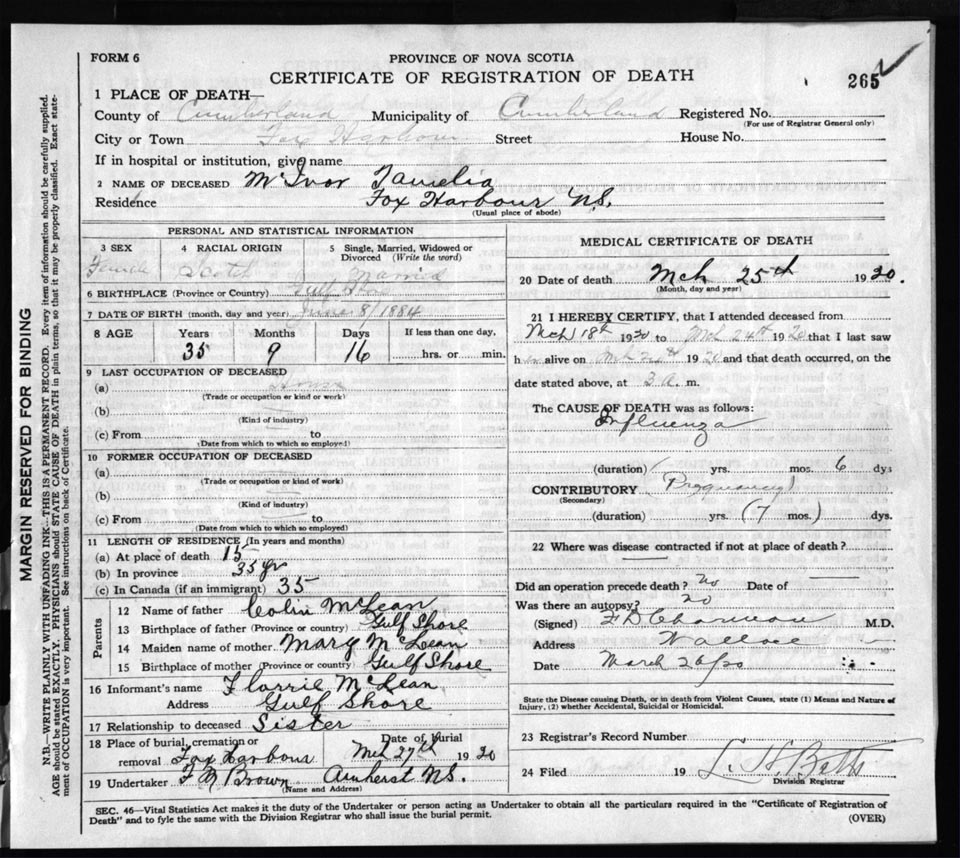 FORM 6
PROVINCE OF NOVA SCOTIA
CERTIFICATE OF REGISTRATION OF DEATH
265
1 PLACE OF DEATH—
County of Cumberland Municipality of Cumberland Registered No.
(For use of Registrar General only)
City or Town Fox Harbour Street House No.
If in hospital or institution, give name
2 NAME OF DECEASED McIvor Tamelia
Residence Fox Harbour N.S.
(Usual place of abode)
PERSONAL AND STATISTICAL INFORMATION
3 SEX 4 RACIAL ORIGIN 5 Single, Married, Widowed or Divorced (Write the word)
Female Scotch Married
6 BIRTHPLACE (Province or Country) Gulf Shore
7 DATE OF BIRTH (month, day and year) June 8/1884
8 AGE Years Months Days If less than one day,
35 9 16 hrs. or min.
9 LAST OCCUPATION OF DECEASED
(a) House
(Trade or occupation or kind or work)
(b)
(Kind of industry)
(c) From to
(Date from which to which so employed)
10 FORMER OCCUPATION OF DECEASED
(a)
(Trade or occupation or kind of work)
(b)
(Kind of industry)
(c) From to
(Date from which to which so employed)
11 LENGTH OF RESIDENCE (In years and months)
(a) At place of death 15
(b) In province 35 yrs
(c) In Canada (if an immigrant) 35
Parents
12 Name of father Colin McLean
13 Birthplace of father (Province or country) Gulf Shore
14 Maiden name of mother Mary McLean
15 Birthplace of mother (Province or country) Gulf Shore
16 Informant's name Florrie McLean
Address Gulf Shore
17 Relationship to deceased Sister
18 Place of burial, cremation or removal Fox Harbour Date of Burial Mch 27th 1920
19 Undertaker F M Brown Amherst N.S.
(Name and Address)
MEDICAL CERTIFICATE OF DEATH
20 Date of death Mch 25th 1920.
(Month, day and year)
21 I HEREBY CERTIFY, that I attended deceased from
Mch 18th 1920 to Mch 24th 1920 that I last saw
her alive on Mch 24th 1920 and that death occurred, on the
date stated above, at 3 a. m.
The CAUSE OF DEATH was as follows:
Influenza
(duration) yrs. mos. 6 dys
CONTRIBUTORY (Pregnancy)
(Secondary)
(duration) yrs. (7 mos.) dys.
22 Where was disease contracted if not at place of death?
Did an operation precede death? No Date of
Was there an autopsy? No
(Signed) F D Charman M.D.
Address Wallace
Date March 26/20
State the Disease causing Death, or in death from Violent Causes, state (1) Means and Nature of
Injury, (2) whether Accidental, Suicidal or Homicidal.
23 Registrar's Record Number
24 Filed 19 L. H. Betts
Division Registrar
SEC. 46—Vital Statistics Act makes it the duty of the Undertaker or person acting as Undertaker to obtain all the particulars required in the "Certificate of Registration of
Death" and to fyle the same with the Division Registrar who shall issue the burial permit.
(OVER)
MARGIN RESERVED FOR BINDING
N.B.—WRITE PLAINLY WITH UNFADING INK—THIS IS A PERMANENT RECORD. Every item of information should be carefully supplied.
AGE should be stated EXACTLY. PHYSICIANS should STATE CAUSE OF DEATH in plain terms, so that it may be properly classified. Exact state-
ment of OCCUPATION is very important. See instructions on back of Certificate.